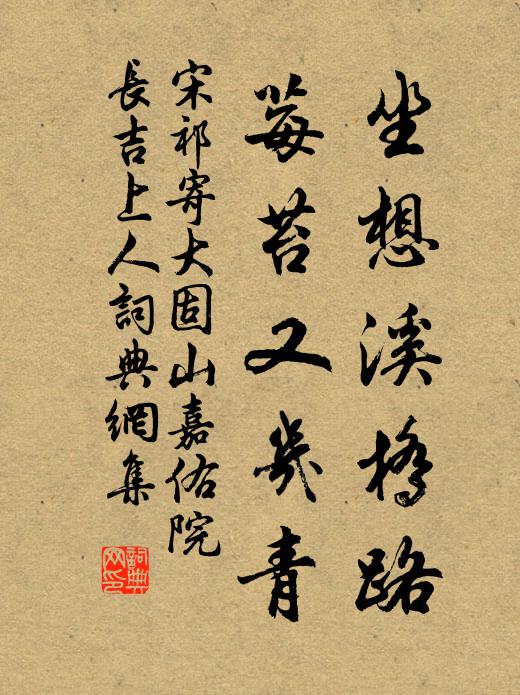 坐想溪橋路
莓苔又幾青
宋祁寄大固山嘉佑院
長吉上人詞典網集
詞典网印